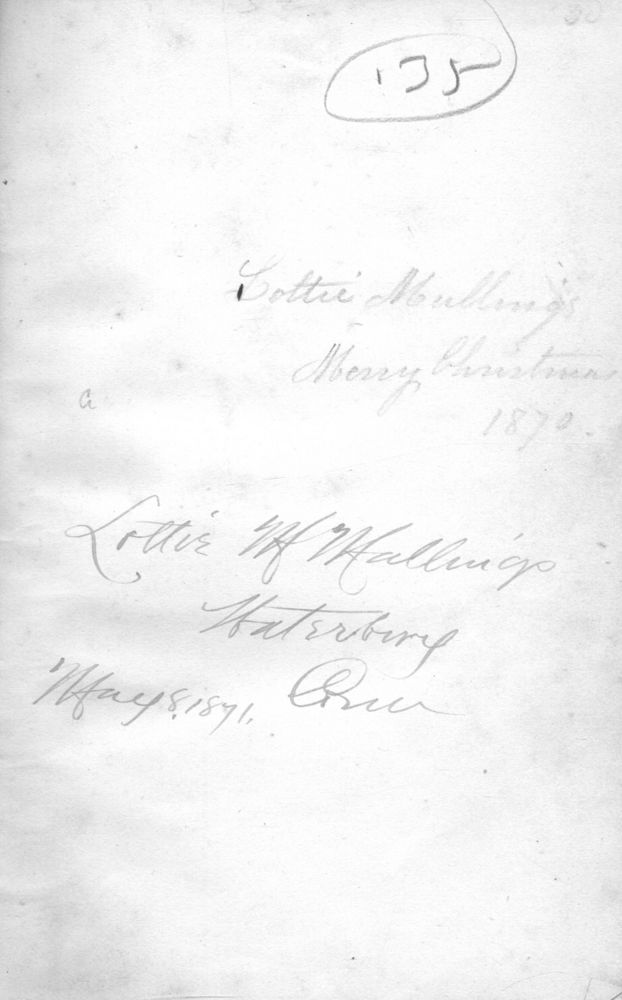 135
Lottie Mullings
Merry Christmas
1870.
Lottie M Mullings
Waterbury
May 8, 1871, Conn